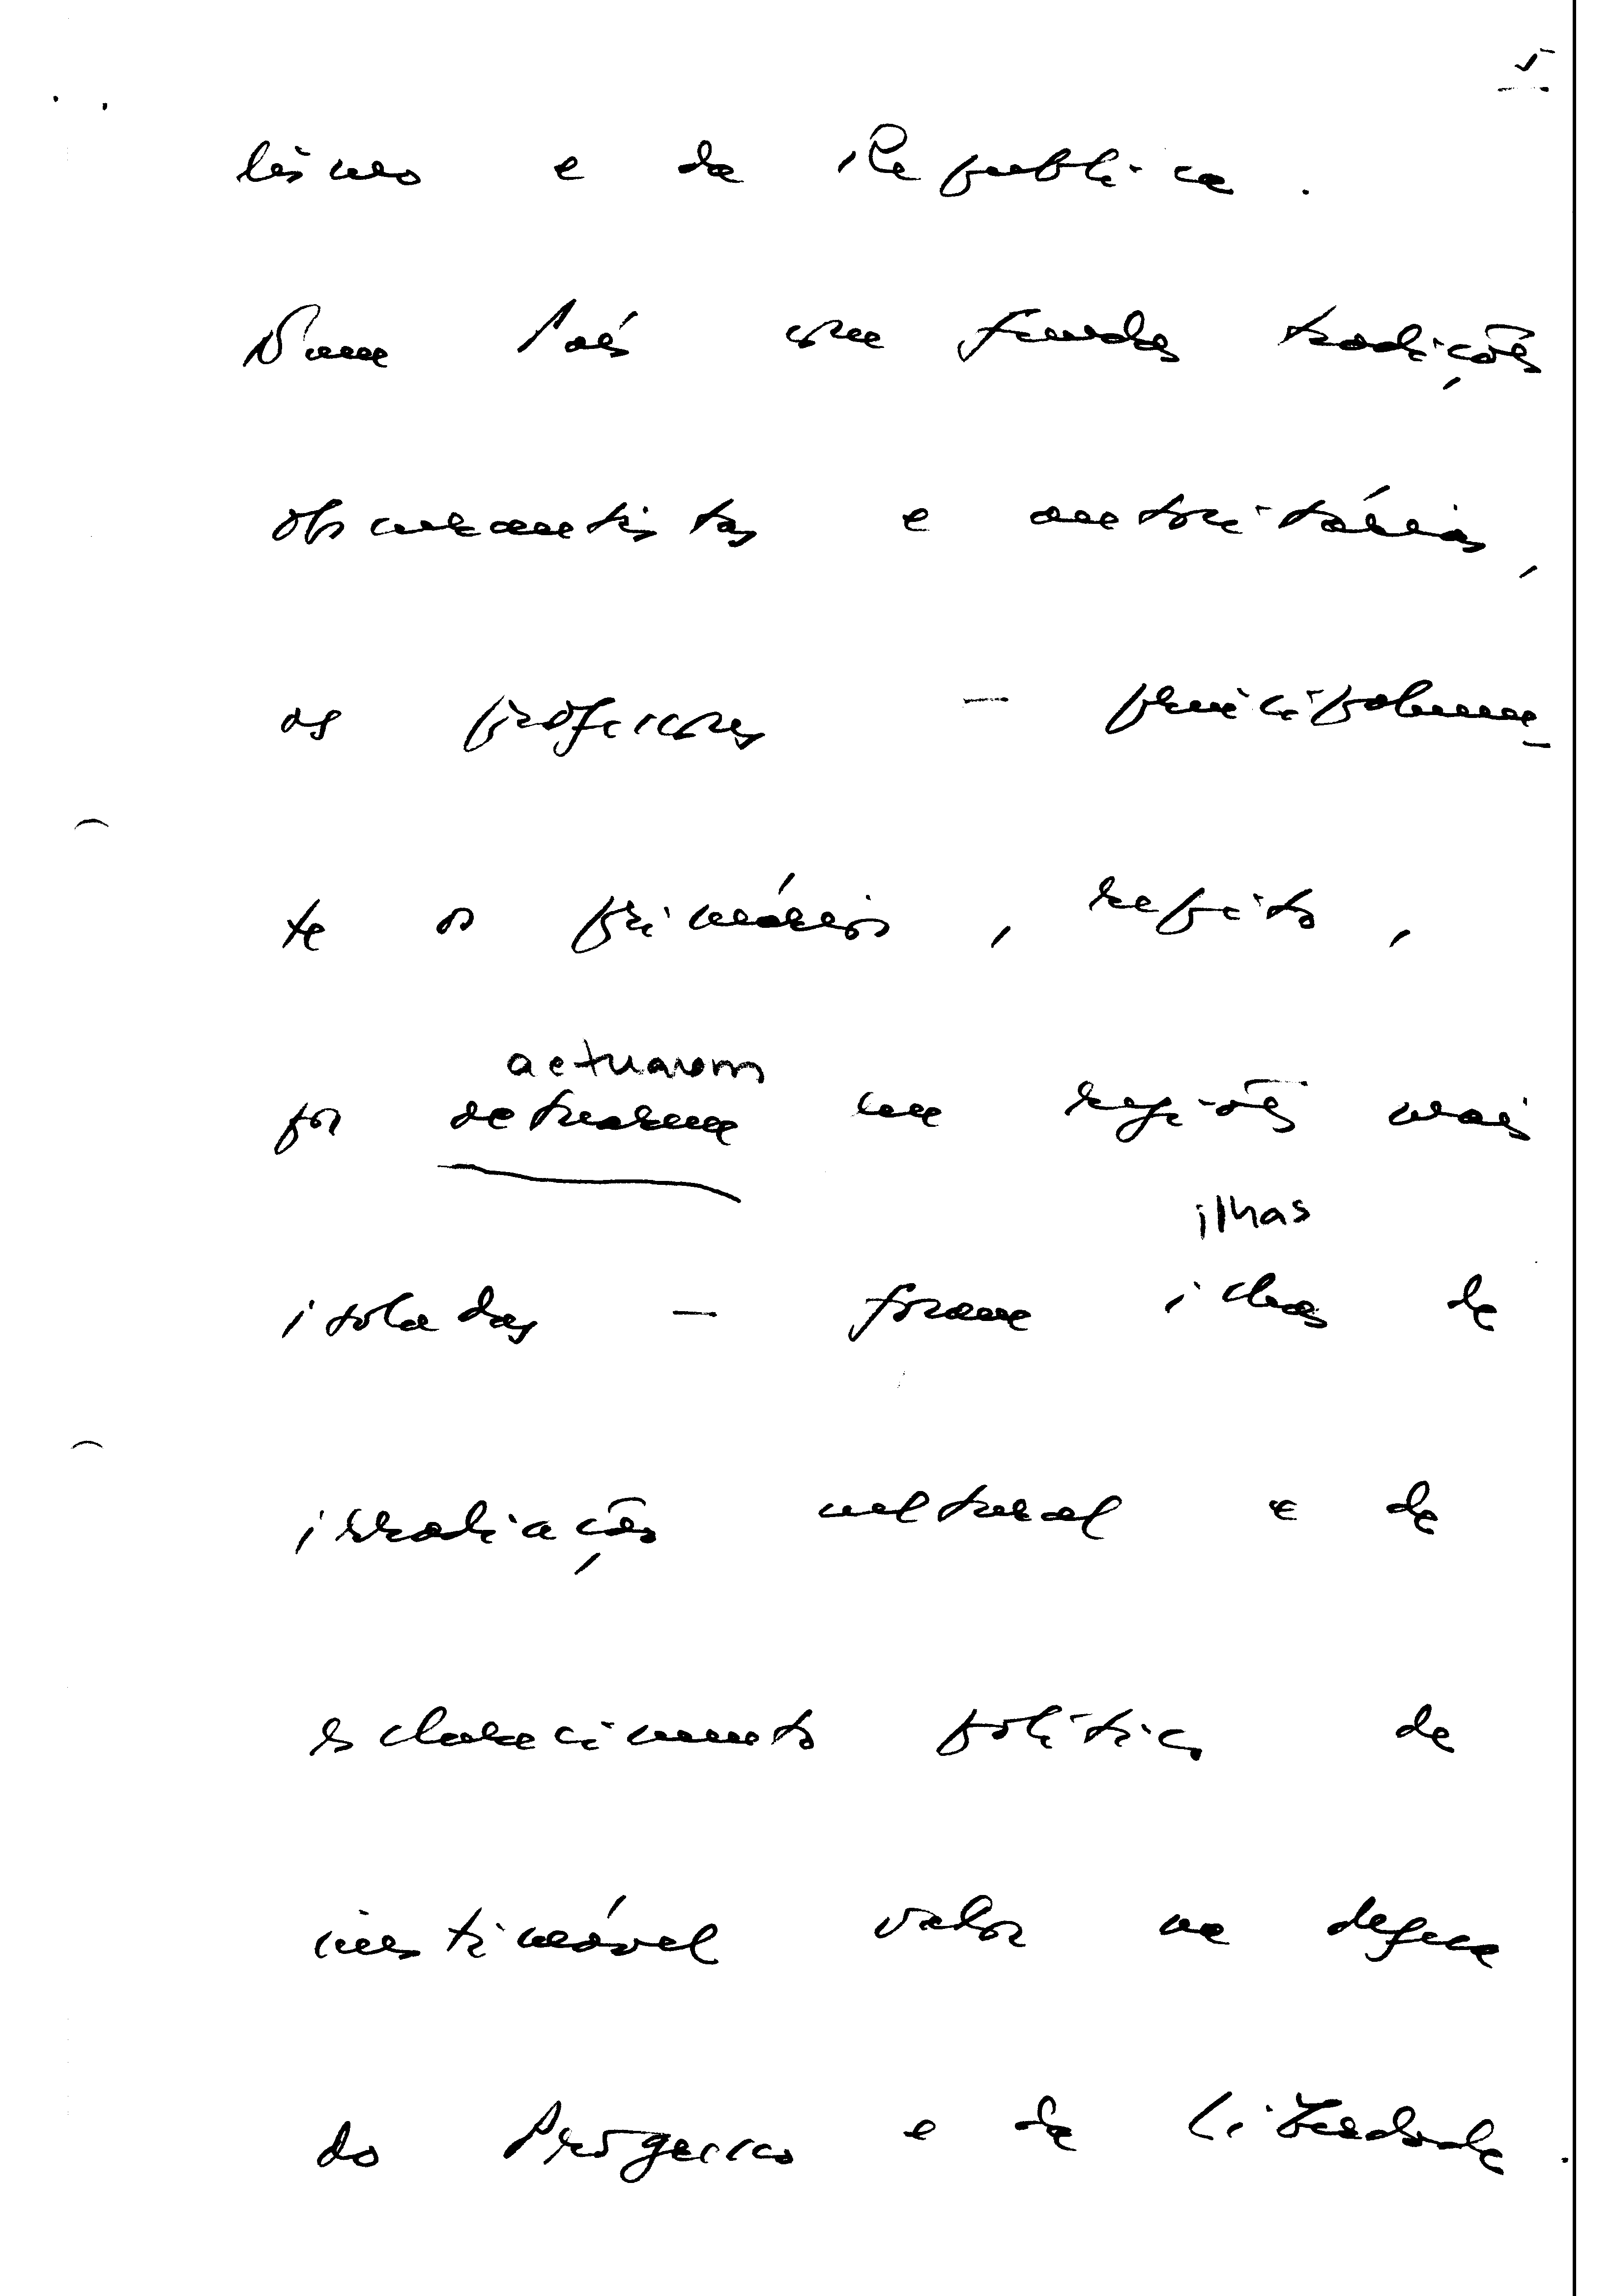 5
lismo e da República.
Num País com fundas tradições
obscurantistas e autoritárias,
os professores – principalmen-
te os primários, repito,
actuarem
por actuarem em regiões mais
ilhas
isoladas – foram ilhas de
irradiação cultural e de
esclarecimento político de
inestimável valor na defesa
do Progresso e da Liberdade.